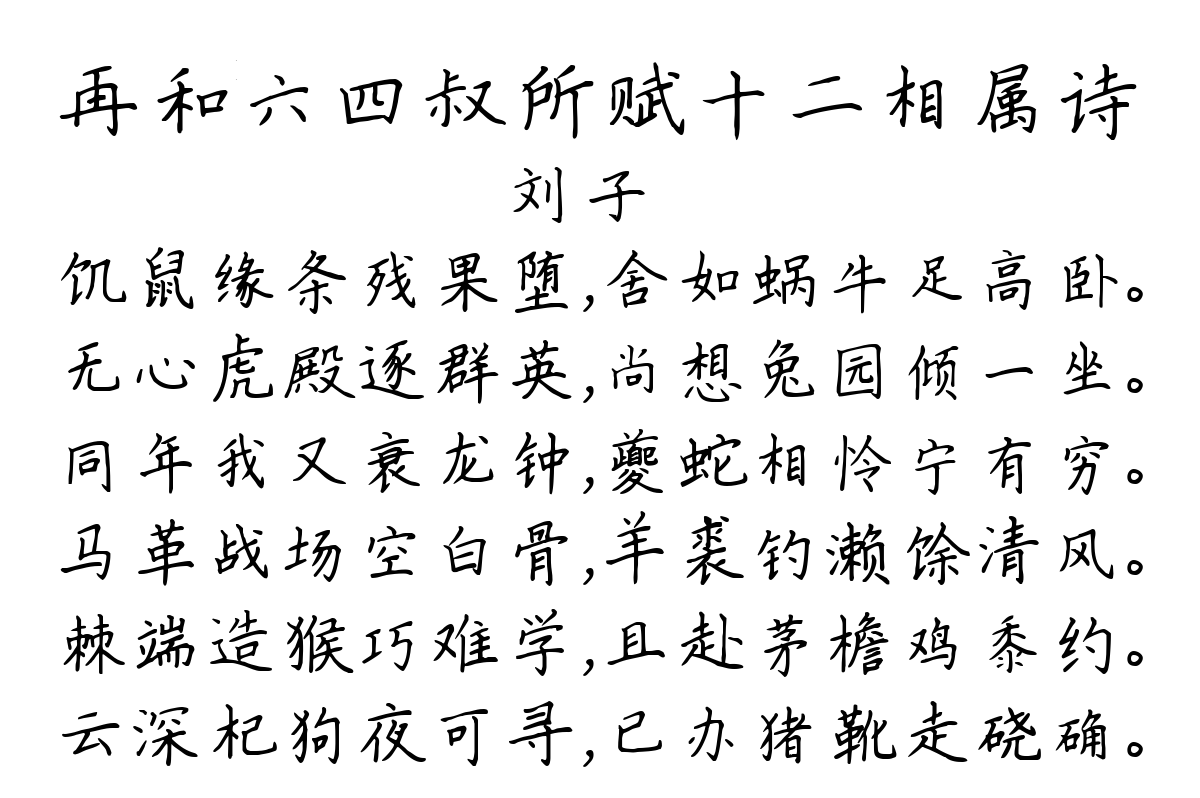 再和六四叔所赋十二相属诗
刘子
饥鼠缘条残果堕,舍如蜗牛足高卧。
无心虎殿逐群英,尚想兔园倾一坐。
同年我又衰龙钟,夔蛇相怜宁有穷。
马革战场空白骨,羊裘钓濑馀清风。
棘端造猴巧难学,且赴茅檐鸡黍约。
云深杞狗夜可寻,已办猪靴走硗确。